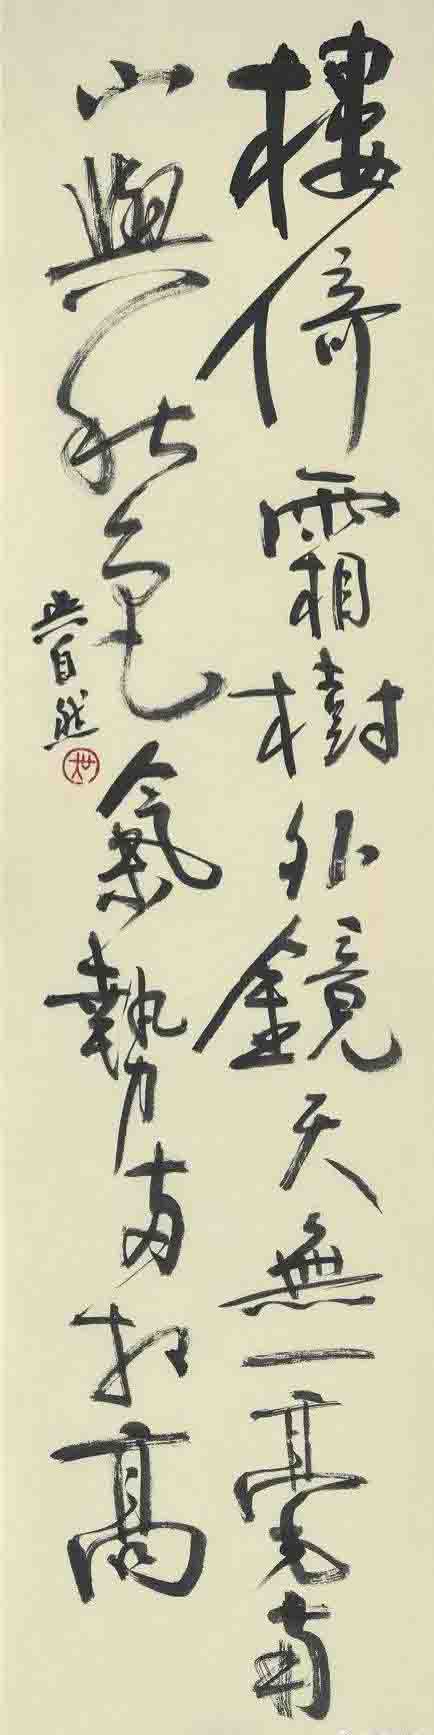 樓倚霜樹外鏡天無一毫南
山與秋色氣勢兩相高
自然